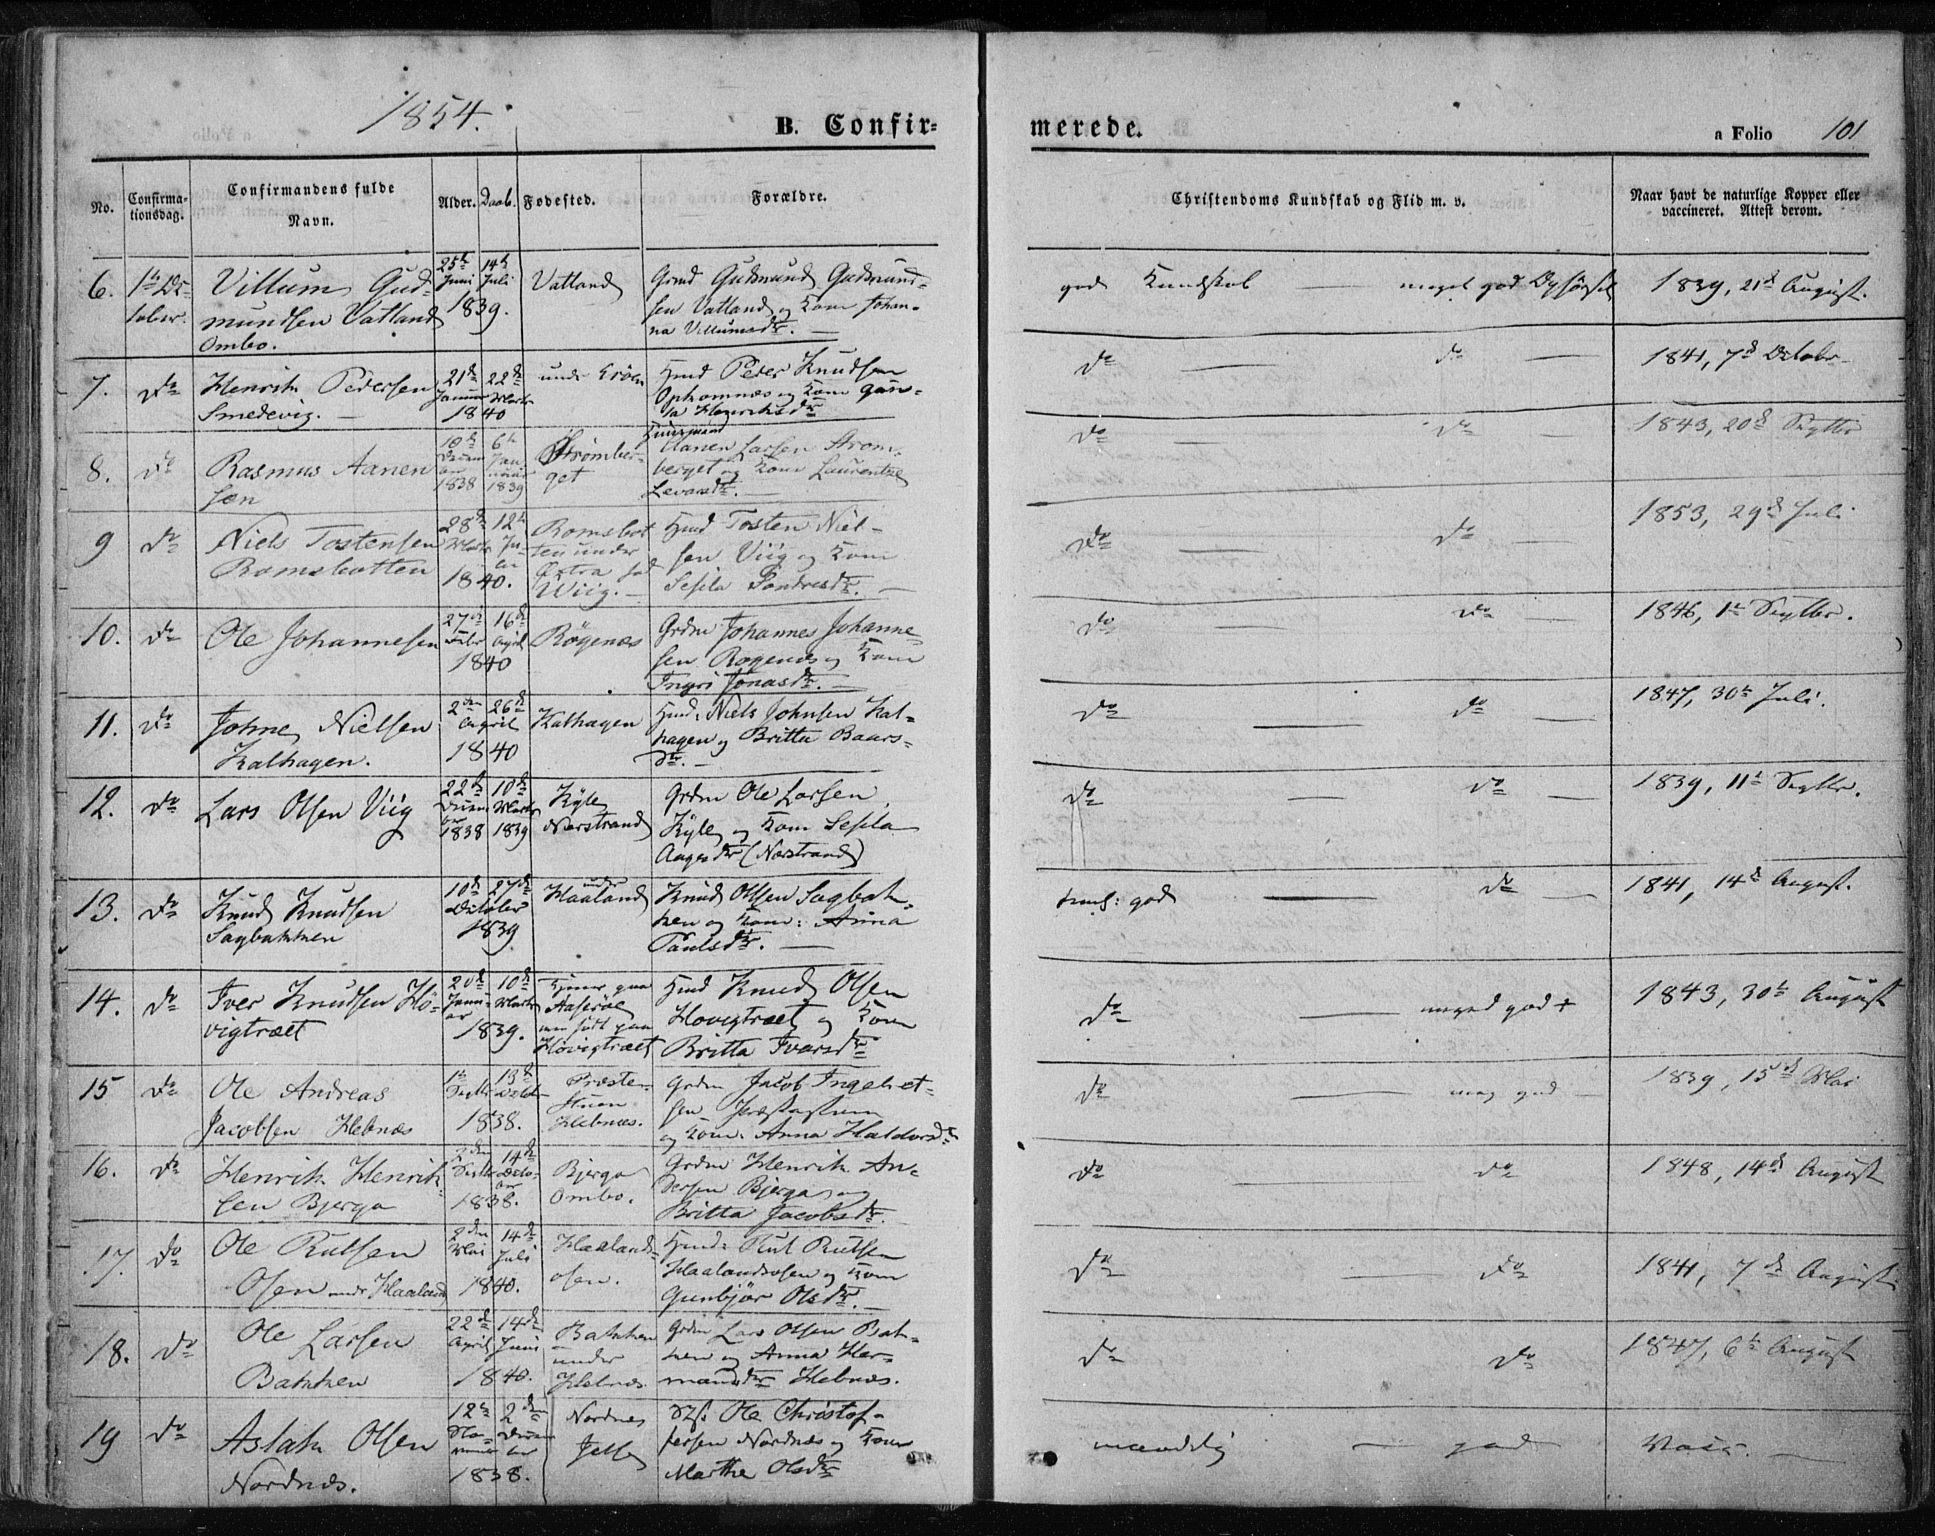 1854.
B. Confir-
merede.
a Folio 101
No.
Confirma-
tionsdag.
Confirmandens fulde
Navn.
Alder.
Daab.
Fødested.
Forældre.
Christendoms Kundskab og Flid m. v.
Naar havt de naturlige Kopper eller
vaccineret. Attest derom.
6. 1ste Oc-
tober.
Villum Gud-
mundsen Vatland
Ombo.
25de Juni
14de Juli
1839.
Vatland
Grmd Gudmund Gudmund-
sen Vatland og Kone Johan-
na Villumsdtr.
god Kundskab — meget god Opførsel
1839, 21de August.
7. Do
Henrik Pedersen
Smedevig.
21de Januar
22de Marts
1840
under
Huusmd Peder Knudsen
Ophomnæs og Kone Gun-
la Henriksdtr
Do — Do —
1841, 7de Octobr
8. Do
Rasmus Aanen
sen
10de December
1838
6te Januar
1839
Strømber-
get
Huusmand
Aanen Larsen Strøm-
berget og Kone Laurentze
Levarsdtr.
Do — Do —
1843, 20de Septbr
9 Do
Niels Tostensen
Romsbotten
28de Marts
12te Ju-
li
1840.
Romsbot
ten under
Østra
Wiig.
Huusmd Tosten Niel-
sen Viig og Kone
Sesela Sondresdtr.
Do — Do —
1853, 29de Juli
10. Do
Ole Johannesen
27de Febr
16de April
1840
Røgenæs
Grdm Johannes Johanne-
sen Røgenæs og Kone
Ingri Jonasdtr.
Do — Do —
1846, 1ste Septbr.
11. Do
Johne Nielsen
Kalhagen.
2den
26de
April
1840
Kalhagen
Huusmd: Niels Johnsen Kal-
hagen og Britta Baars-
dtr.
Do — Do —
1847, 30te Juli.
12. Do
Lars Olsen Viig
22de December
1838
10de Marts
1839
Kyle
Nærstrand
Grdm Ole Larsen
Kyle og Kone Sesela
Aagesdtr (Nærstrand)
Do — Do —
1839, 11te Septbr.
13. Do
Knud Knudsen
Sagbakken
10de
27de
October
1839
under
Haaland
Knud Olsen Sagbak-
ken og Kone: Anna
Paulsdtr.
temf: god — Do
1841, 14de August.
14. Do
Iver Knudsen Hö-
vigtræet
20de Janu-
ar
10de Marts
1839.
paa
men født paa
Hovigtræet
Huusmd Knud Olsen
Hovigtræet og Kone
Britta Ivarsdtr
Do — meget god +
1843, 30te August
15 Do
Ole Andreas
Jacobsen Hebnæs
1ste Septbr
13de Octbr
1838.
Præste-
stuen
Hebnæs.
Grdm Jacob Ingebret-
sen
og Kone: Anna Haldorsdtr
Do — meg god —
1839, 15de Mai
16. Do
Henrik Henrik-
sen Bjerga
2den Septbr
14de Octo-
ber
1838.
Bjerga
Ombo.
Grdm Henrik An-
dersen Bjerga og
Britta Jacobsdtr.
Do — Do
1848, 14de August
17. Do
Ole Rutsen
Osen under Haaland
2den Mai
14de Juli
1840.
Haalands-
osen.
Huusmd: Rut Rutsen
Haalandsosen og Kone
Gunbjør Olsdtr.
Do — Do
1841, 7de August
18. Do
Ole Larsen
Bakken
22de April
14de Juni
1840.
Bakken
under
Hebnæs
Grdm Lars Olsen Bak-
ken og Anna Her-
mansdtr Hebnæs.
Do Do
1847, 6te August
19 Do
Aslak Olsen
Nordnæs.
12te No-
vember
2den Decem-
ber
1838.
Nordnæs
Jelse
Ole Christof-
fersen Nordnæs og Kone
Marthe Olsdtr
maadelig — god